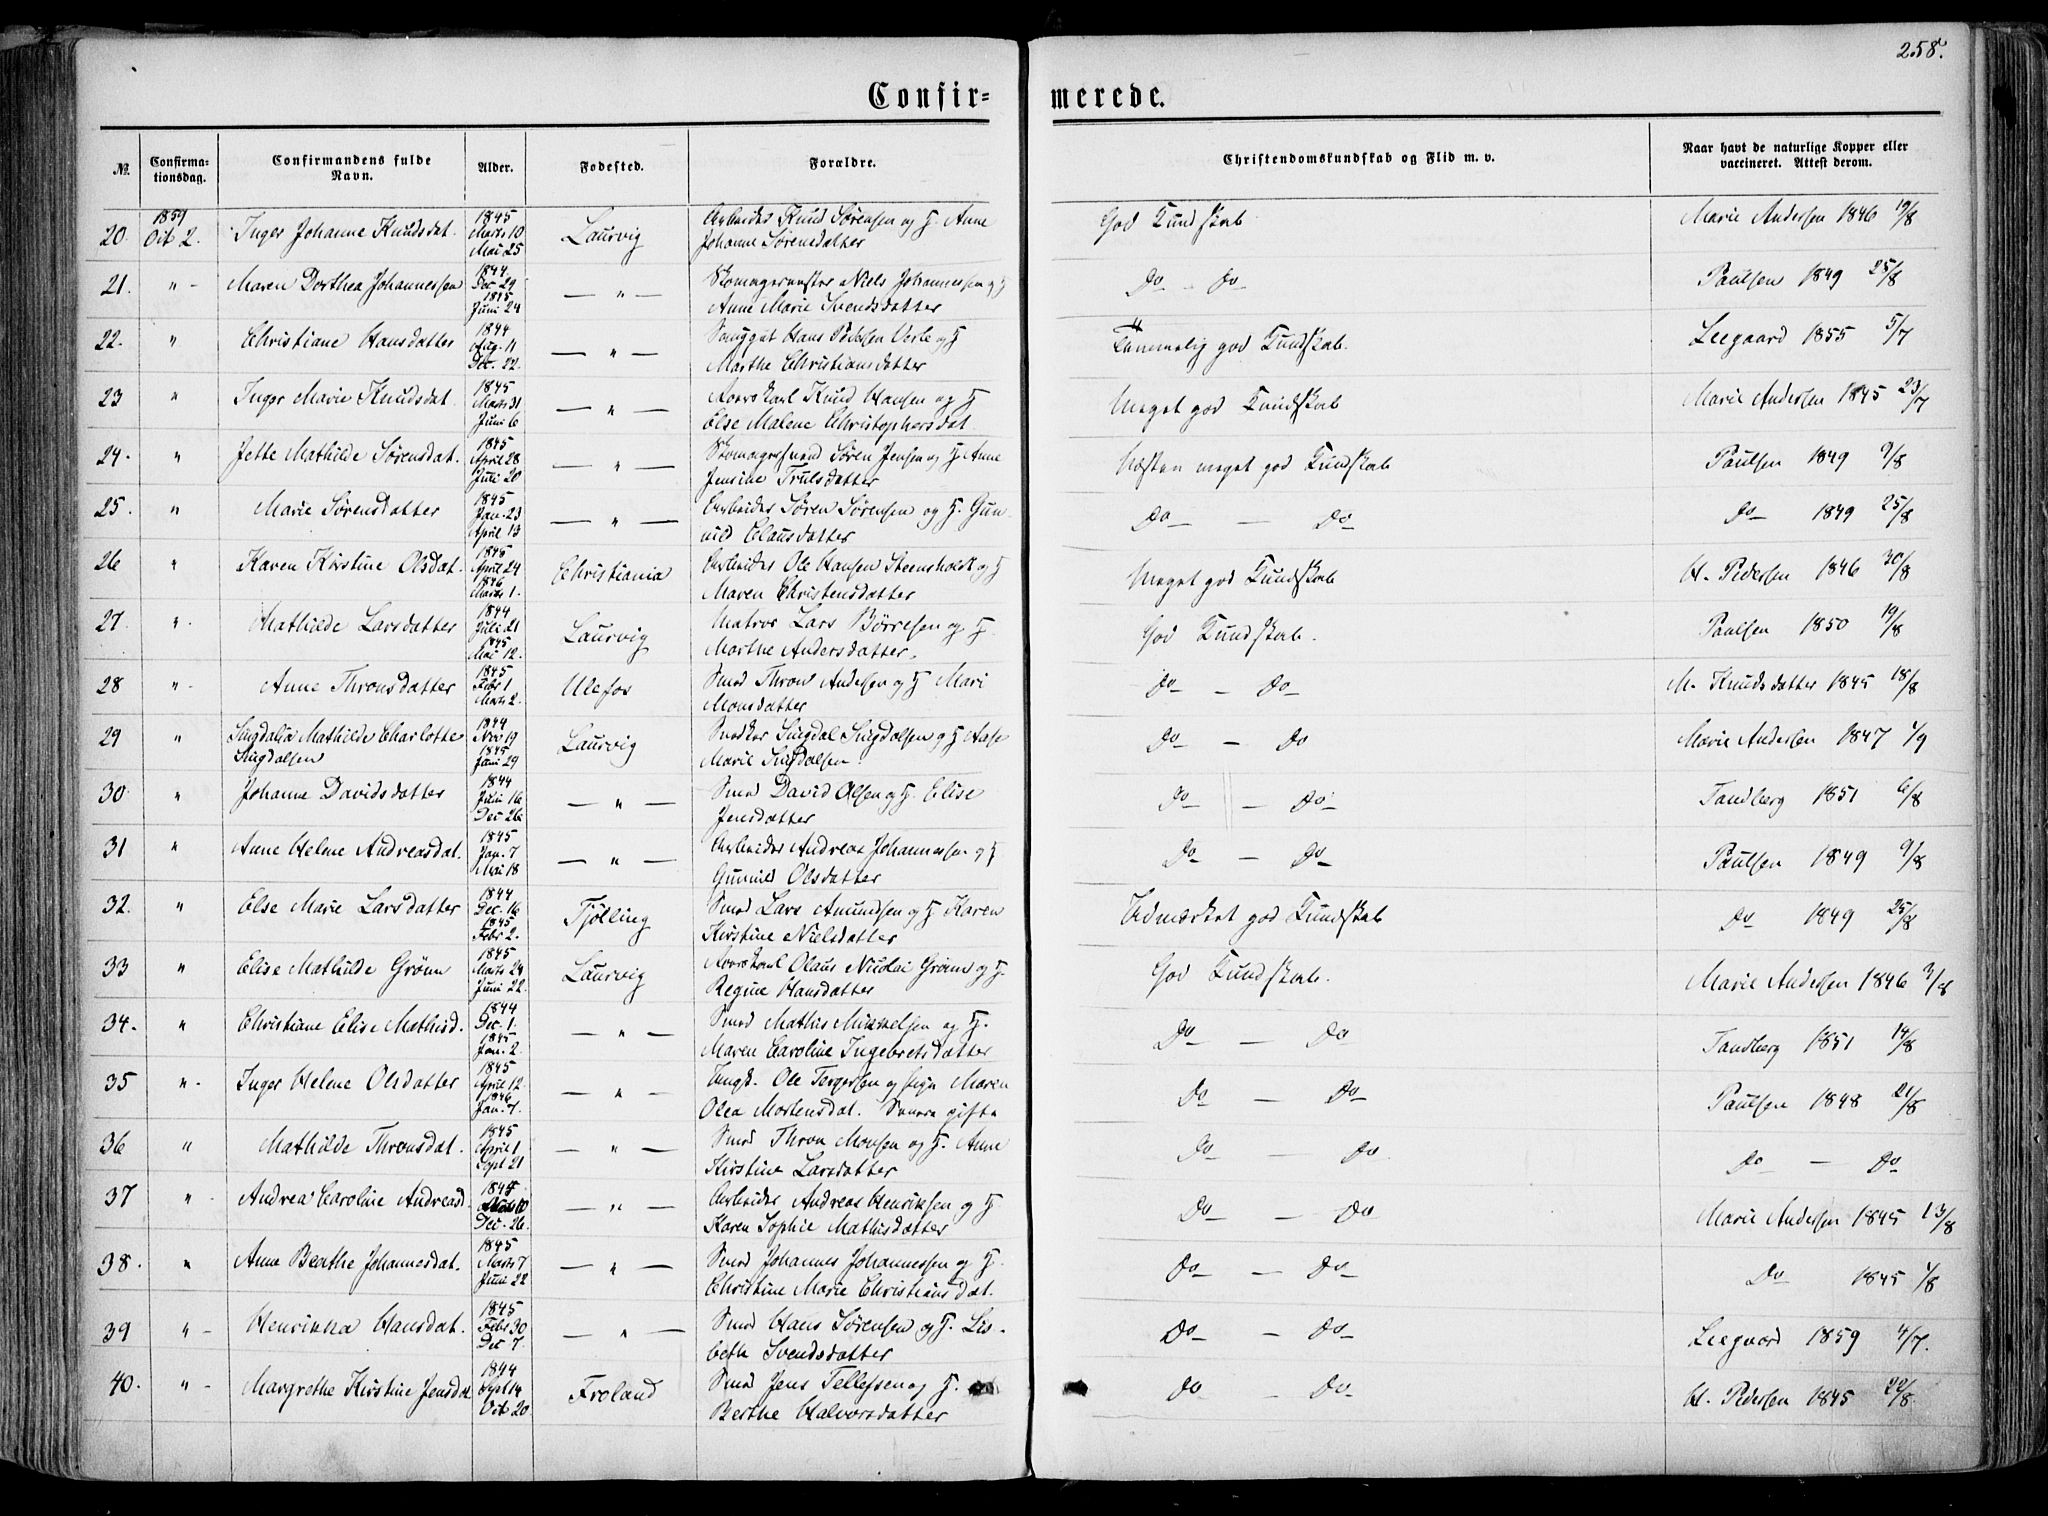 258.
Confir-merede.
No. Confirmationsdag. Confirmandens fulde Navn. Alder. Fodested. Forældre. Christendomskundskab og Flid m. v. Naar havt de naturlige Kopper eller vaccineret. Attest derom.
20. 1859 Oct 2. Inger Johanne Knudsdat. 1845 Marts 10 Mai 25 Laurvig Arbeider Knud Sørensen og H. Anne Johanne Sørensdatter God Kundskab Marie Andersen 1846 19/8
21. " - Maren Dorthea Johannessen 1844 Dec 29 1845 Juni 24 — " — Skomagermester Niels Johannessen og H Anne Marie Svendsdatter Do - Do Paulsen 1849 25/8
22. " Christiane Hansdatter 1844 Aug. 11 Dec. 22. — " — Hans Pedersen og H Marthe Christiansdatter Temmelig god Kundskab. Leegaard 1855 5/7
23 " Inger Marie Knudsdat. 1845 Marts 31 Juni 6 — " — Knud Hansen og H Else Malene Christophersdat Meget god Kundskab Marie Andersen 1845 23/7
24. " Jette Mathilde Sørensdat. 1845 April 28 Juli 20 — " — Skomagersvend Søren Jensen og H. Anne Jensine Trulsdatter Næsten meget god Kundskab Paulsen 1849 9/8
25. " Marie Sørensdatter 1845 Jan. 23 April 13 — " — Arbeider Søren Sørensen og H. Gunnild Clausdatter Do — Do Do 1849 25/8
26 " Karen Kirstine Olsdat. 1845 April 24 1846 Marts 1. Christiania Arbeider Ole Hansen Steensholt og H Maren Christensdatter Meget god Kundskab H. Pedersen 1846 30/8
27. " Mathilde Larsdatter 1844 Juli 21 1845 Mai 12. Laurvig Matros Lars Børresen og H. Marthe Andersdatter. God Kundskab. Paulsen 1850 19/8
28 " - Anne Thronsdatter 1845 Febr 1 Marts 2. Ulefos Smed Thron Andersen og H Mari Monsdatter Do — Do M. Knudsdatter 1845 18/8
29 " Singdalia Mathilde Charlotte Singdalsen 1844 Nov 19 1845 Juni 29 Laurvig Snedker Singdal Singdalsen og H Aase Marie Singdalsen. Do — Do Marie Andersen 1847 1/9
30. " Johanne Davidsdatter 1844 Juni 16 Dec 26. — " — Smed David Olsen og H. Elise Jensdatter Do — Do Tandberg 1851 6/8
31 " Anne Helene Andreasdat. 1845 Jan. 7 Mai 18 — " — Arbeider Andreas Johannessen og H Gunnild Olsdatter Do — Do Paulsen 1849 9/8
32. " Else Marie Larsdatter 1844 Dec. 16 1845 Febr 2. Tjølling Smed Lars Amundsen og H Karen Kirstine Nielsdatter Udmærket god Kundskab Do 1849 25/8
33 " Elise Mathilde Grønn 1845 Marts 24 Juni 22. Laurvig Olaus Nicolai Grønn og H. Regine Hansdatter God Kundskab. Marie Andersen 1846 3/8
34. " Christiane Elise Mathisd. 1844 Dec. 1. 1845 Jan. 2. — " — Smed Mathis Mikkelsen og H. Maren Caroline Ingebretsdatter Do — Do Tandberg 1851 14/8
35 " - Inger Helene Olsdatter 1845 April 12 1846 Jan. 7. — " — Ungk. Ole Tergersen og Pige Maren Olea Mortensdat. Senere gifte Do — Do Paulsen 1848 21/8
36 " Mathilde Thronsdat. 1845 April 1 Sept 21 — " — Smed Thron Monsen og H. Anne Kirstine Larsdatter Do — Do Do — Do
37 " - Andrea Caroline Andreasd. 1844 Dec. 26. — " — Arbeider Andreas Henriksen og H. Karen Sophie Mathisdatter Do — Do Marie Andersen 1845 13/8
38. " Anne Berthe Johannesdat. 1845 Marts 7 Juni 22 — " — Smed Johannes Johannessen og H. Christine Marie Christiansdat. Do — Do Do 1845 1/8
39 " - Henrikka Hansdat. 1845 Febr 30 Dec 7. — " — Smed Hans Sørensen og H. Lisbeth Svendsdatter Do — Do Leegaard 1859 4/7.
40. " - Margrethe Kirstine Jensdat 1844 Sept 14 Oct 20 Froland Smed Jens Tellefsen og H. Berthe Halvorsdatter Do — Do H. Pedersen 1845 22/8.